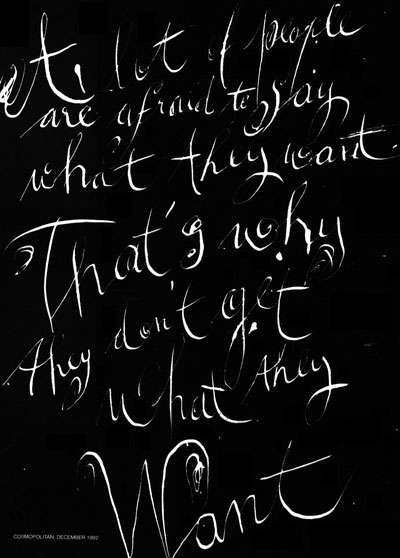 A lot of people
are afraid to say
what they want.
That's why
they don't get
what they
Want.
COSMOPOLITAN, DECEMBER 1992